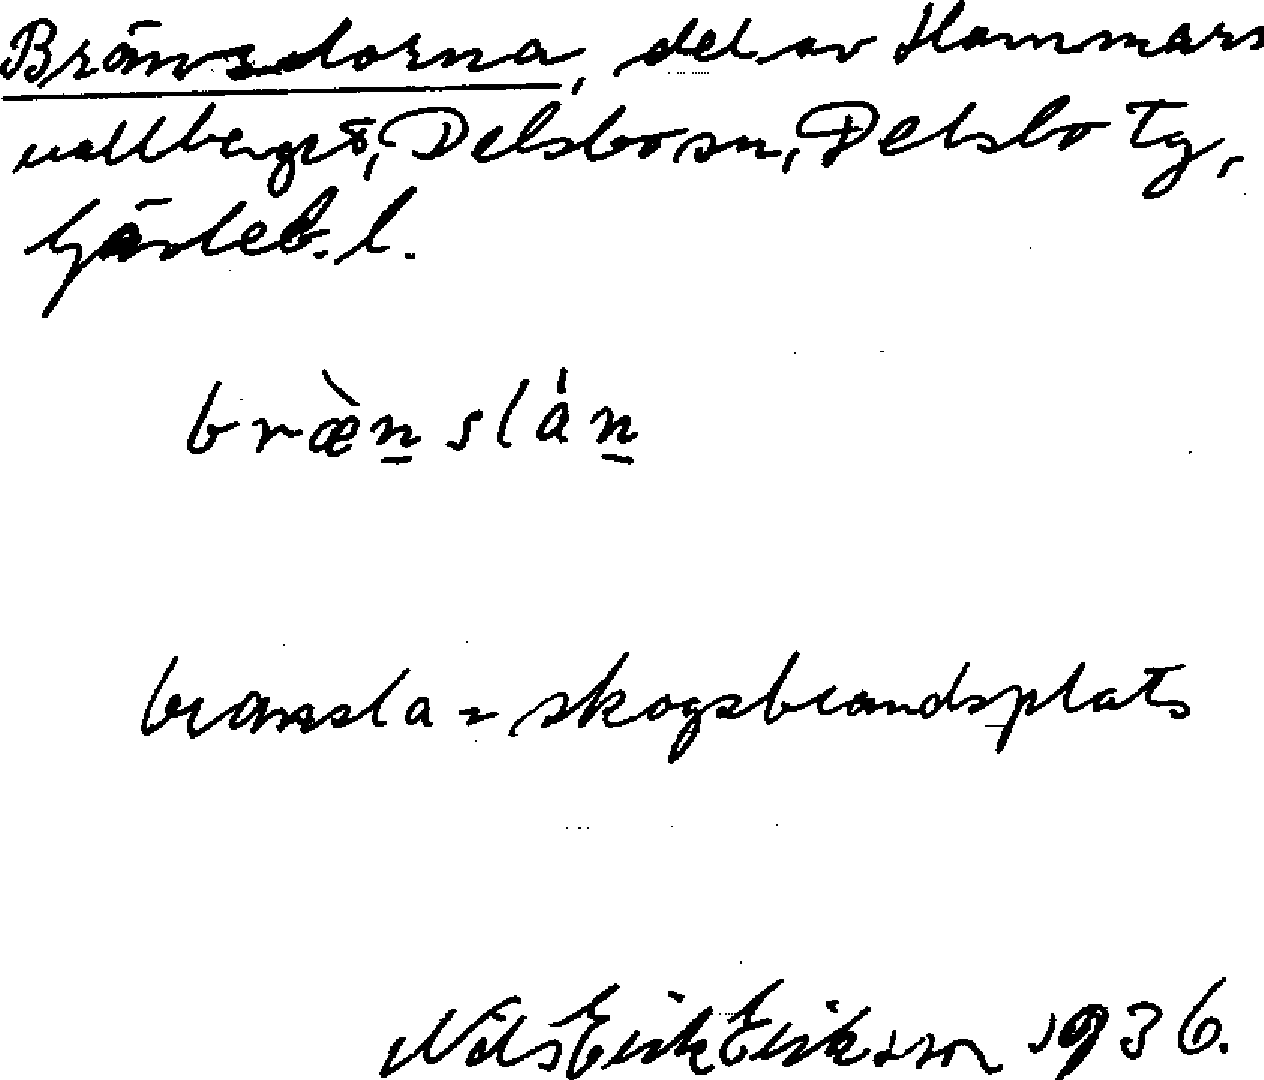 Bränslorna, del av Hammars
vallberget, Delsbo sn, Delsbo tg,
Gävleb. l.
bræ̀n̲slán̲
bransla = skogsbrandsplats
Nils Erik Eriksson 1936.